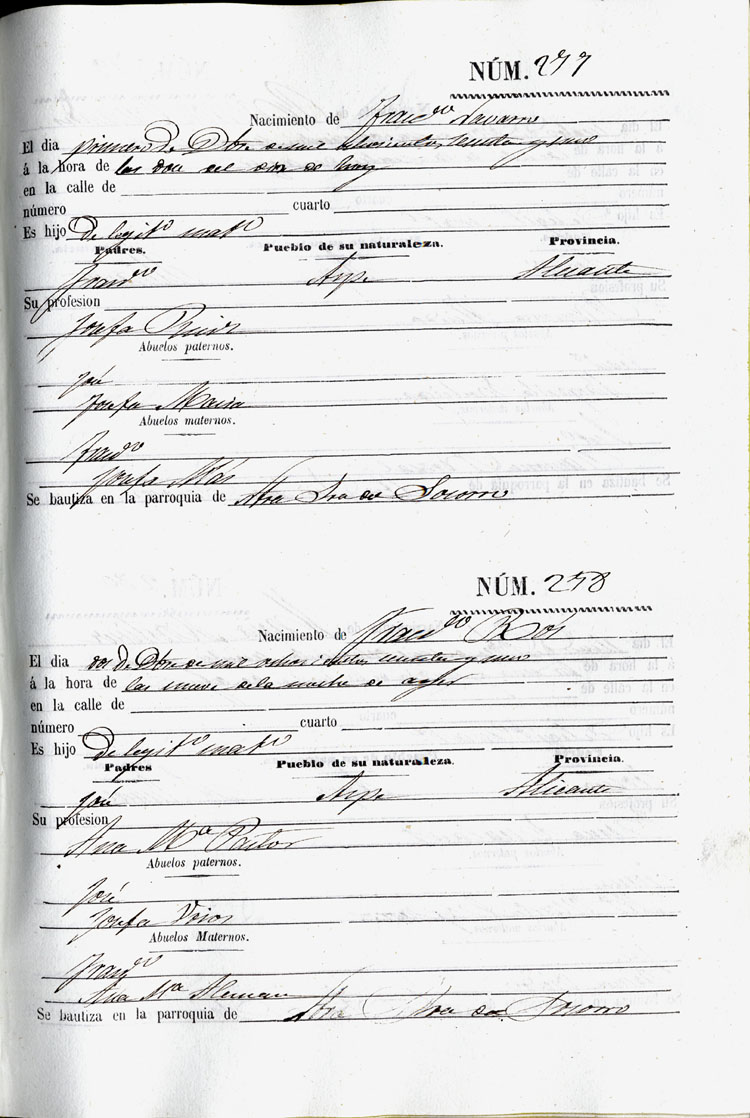 NÚM. 277
Nacimiento de Fran.co Navarro
El dia primero de Dbre de mil ochocientos sesenta y uno
á la hora de las doce del dia de hoy
en la calle de
número cuarto
Es hijo de legit.o mat.o
Padres. Pueblo de su naturaleza. Provincia.
Fran.co Aspe Alicante
Su profesion
Josefa
Abuelos paternos.
José
Josefa Maria
Abuelos maternos.
Fran.co
Josefa Más
Se bautiza en la parroquia de Ntra Sra del Socorro
NÚM. 278
Nacimiento de Fran.co Bot
El dia dos de Dbre de mil ochocientos sesenta y uno
á la hora de las nueve de la noche de ayer
en la calle de
número cuarto
Es hijo de legit.o mat.o
Padres Pueblo de su naturaleza. Provincia.
José Aspe Alicante
Su profesion
Ana M.a Pastor
Abuelos paternos.
José
Josefa
Abuelos Maternos.
Fran.co
Ana M.a Aleman
Se bautiza en la parroquia de Ntra Sra del Socorro